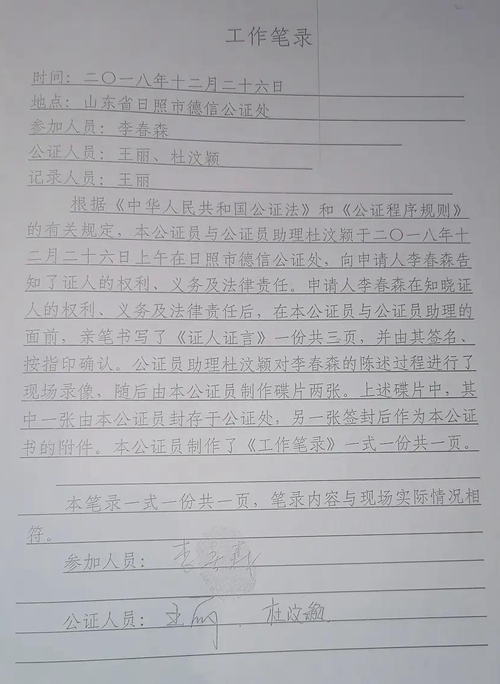 工作笔录
时间：二〇一八年十二月二十六日
地点：山东省日照市德信公证处
参加人员：李春森
公证人员：王丽、杜汶颖
记录人员：王丽
根据《中华人民共和国公证法》和《公证程序规则》
的有关规定，本公证员与公证员助理杜汶颖于二〇一八年十
二月二十六日上午在日照市德信公证处，向申请人李春森告
知了证人的权利、义务及法律责任。申请人李春森在知晓证
人的权利、义务及法律责任后，在本公证员与公证员助理的
面前，亲笔书写了《证人证言》一份共三页，并由其签名、
按指印确认。公证员助理杜汶颖对李春森的陈述过程进行了
现场录像，随后由本公证员制作碟片两张。上述碟片中，其
中一张由本公证员封存于公证处，另一张签封后作为本公证
书的附件。本公证员制作了《工作笔录》一式一份共一页。
本笔录一式一份共一页，笔录内容与现场实际情况相
符。
参加人员：李春森
公证人员：王丽、杜汶颖